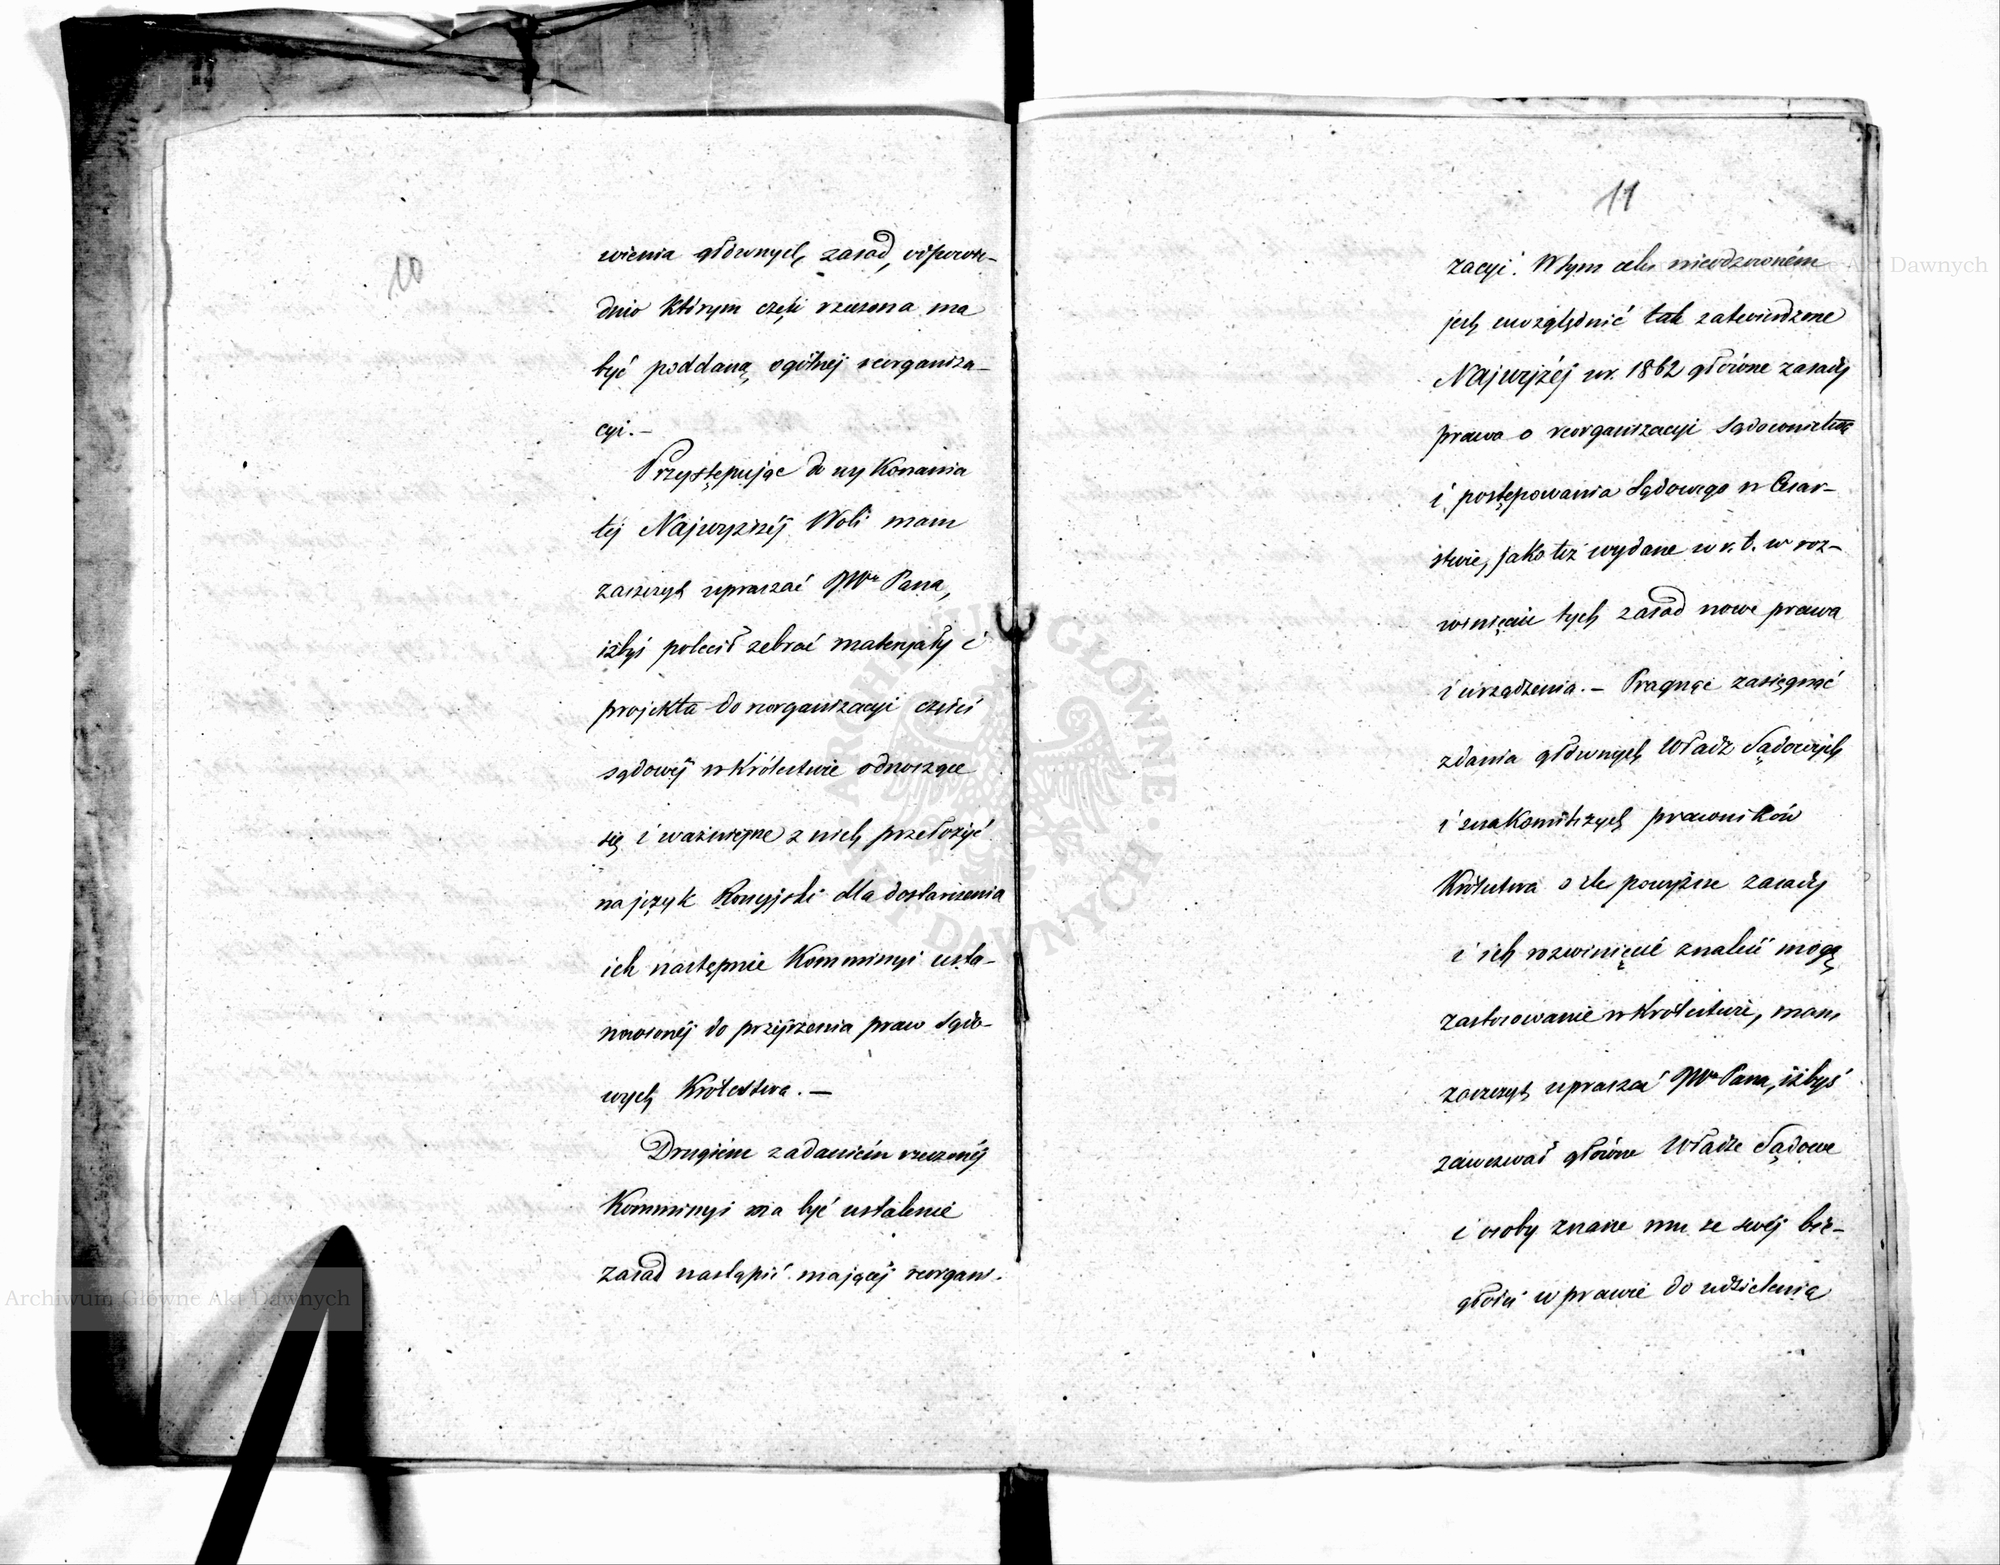 10
wienia głównych zasad, odpowie-
dnio którym część rzeczona ma
być poddaną ogólnej reorganiza-
cyi.—
Przystępując do wykonania
tej Najwyższéj Woli mam
zaszczyt upraszać JWo Pana,
iżbyś polecił zebrać materyały i
projekta do reorganizacyi części
sądowéj w Królestwie odnoszące
się i ważniejsze z nich przełożyć
na język Rossyjski dla dostarczenia
ich następnie Kommissyi usta-
nowionéj do przejrzenia praw Sądo-
wych Królestwa.—
Drugiém zadaniém rzeczonéj
Kommissyi ma być ustalenie
zasad nastąpić mającéj reorgani-
11
zacyi. W tym celu nieodzowném
jest uwzględnić tak zatwierdzone
Najwyżéj w r. 1862 główne zasady
prawa o reorganizacyi Sądownictwa
i postępowania Sądowego w Cesar-
stwie, jako też wydane w r. b. w roz-
winięciu tych zasad nowe prawa
i urządzenia.— Pragnąc zasięgnąć
zdania głównych Władz Sądowych
i znakomitszych prawników
Królestwa o ile powyższe zasady
i ich rozwinięcie znaleść mogą
zastosowanie w Królestwie, mam
zaszczyt upraszać JWo Pana, iżbyś
zawezwał główne Władze Sądowe
i osoby znane mu ze swéj bie-
głości w prawie do udzielenia
ARCHIWUM GŁÓWNE AKT DAWNYCH
Archiwum Główne Akt Dawnych
Archiwum Główne Akt Dawnych